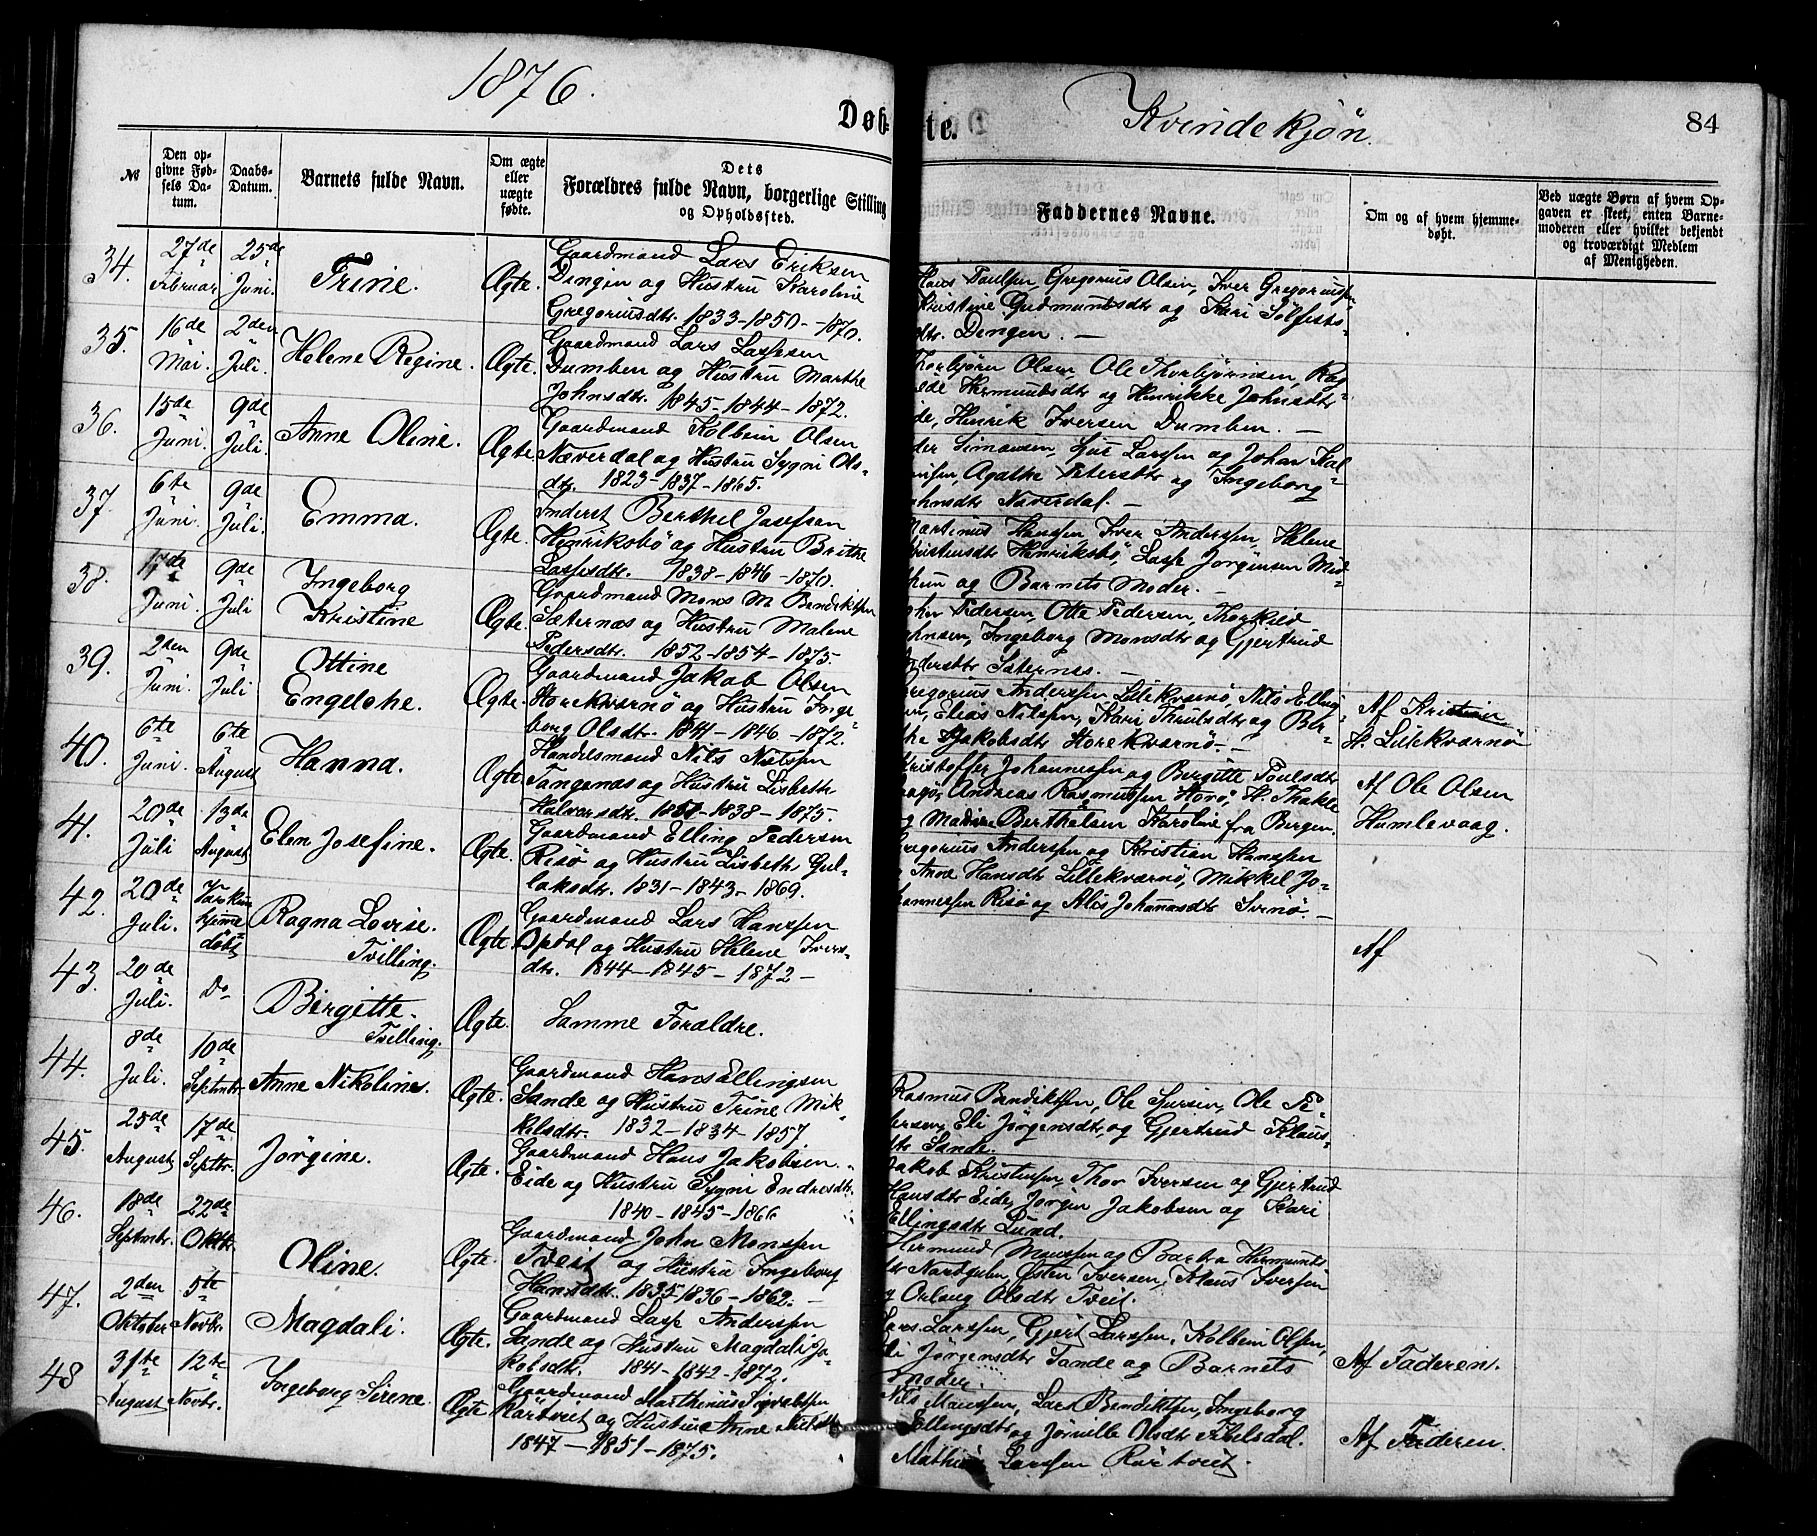 1876.
Døb- te.
Kvindekjøn.
84
№
Den opgivne Fødsels Datum.
Daabs-Datum.
Barnets fulde Navn.
Om ægte eller uægte fødte.
Dets Forældres fulde Navn, borgerlige Stilling og Opholdssted.
Faddernes Navne.
Om og af hvem hjemmedøbt.
Ved uægte Børn af hvem Opgaven er skeet, enten Barnemoderen eller hvilket bekjendt og troværdigt Medlem af Menigheden.
34. 27de Februar 25de Juni. Trine. Ægte.
Gaardmand Lars Eriksen
Dingen og Hustru Karoline
Gregoriusdtr. 1833-1850-1870.
Hans Paulsen, Gregorius Olsen, Iver
Kristine Gudmundsdtr og Kari
Dingen. —
35. 16de Mai. 2den Juli. Helene Regine. Ægte.
Gaardmand Lars Lassesen
Dumben og Hustru Marthe
Johnsdtr. 1845-1844-1872.
Thorbjörn Olsen, Ole Thorbjörnsen,
Hermundsdtr og Henrikke Johnsdtr
Henrik Iversen Dumben. —
36. 15de Juni. 9de Juli. Anne Oline. Ægte.
Gaardmand Kolbein Olsen
Næverdal og Hustru Sygni Ols-
dtr. 1823-1837-1865.
Simonsen, Larsen og Johan
Agathe Petersdtr og Ingeborg
Næverdal. —
37. 6te Juni. 9de Juli. Emma. Ægte.
Inderst Berthel Josefsen
Henriksbö og Hustru Brithe
Lassesdtr. 1838-1846-1870.
Martinus Hanssen, Iver Andersen, Helene
Kristensdtr Henriksbö, Lasse Jörgensen
og Barnets Moder. —
38. 17de Juni. 9de Juli Ingeborg Kristine Ægte.
Gaardmand Mons M Bendiktsen
Sæternæs og Hustru Malene
Pedersdtr. 1852-1854-1875.
Pedersen, Otte Pedersen, Thorkild
Johnsen, Ingeborg Monsdtr og Gjertrud
Andersdtr Sæternes. —
39. 2den Juni. 9de Juli Ottine Engelche. Ægte.
Gaardmand Jakob Olsen
Storekværnö og Hustru Inge-
borg Olsdtr. 1841-1846-1872.
Gregorius Anderssen Lillekværnö, Nils Elling-
Elias Nilssen, Kari og Ber-
the Jakobsdtr Storekværnö. —
Af Kristian
H. Lillekværnö
40. 6te Juni. 6te August Hanna. Ægte.
Handelsmand Nils Nielsen
Tangenæs og Hustru Lisbeth
Halvorsdtr. 1851-1838-1875.
Kristoffer Johannessen og Birgitte Poulsdtr
Andreas Rasmussen
Berthelsen Karoline fra Bergen.
Af Ole Olsen
Humlevaag.
41. 20de Juli 13de August Elen Josefine. Ægte.
Gaardmand Elling Pedersen
Risö og Hustru Lisbeth Gul-
laksdtr. 1831-1843-1869.
Gregorius Anderssen og Kristian Hanssen
Anne Hansdtr Lillekværnö, Mikkel Jo-
hannessen Risö og Alis Johannesdtr Svinö. —
42. 20de Juli. hjemmedöbt Ragna Lovise. Tvilling. Ægte.
Gaardmand Lars Hanssen
Opdal og Hustru Helene Ivers-
dtr. 1844-1845-1872-
Af
43. 20de Juli. Do Birgitte. Tvilling. Ægte.
Samme Forældre.
44. 8de Juli. 10de Septmbr. Anne Nikoline. Ægte.
Gaardmand Hans Ellingsen
Sande og Hustru Trine Mik-
kelsdtr. 1832-1834-1857.
Rasmus Bendiktsen, Ole Ole Pe-
dersen, Eli Jörgensdtr, og Gjertrud Klaus-
dtr Sande.
45. 25de August 17de Septbr. Jörgine. Ægte.
Gaardmand Hans Jakobsen.
Eide og Hustru Sygni Endresdtr.
1840-1845-1866
Jakob Kristensen, Thor Iversen og Gjertrud
Hansdtr Eide, Jörgen Jakobsen og Kari
Ellingsdtr Lund.
46. 18de Septmbr. 22de Oktbr. Oline. Ægte.
Gaardmand John Monssen
Tveit og Hustru Ingeborg
Hansdtr. 1835-1836-1862. —
Hermund Monssen og Barbra Hermunds-
dtr Nordgulen, Östen Iversen, Klaus Iversen
og Olsdtr Tveit.
47. 2den Oktober 5te Novbr. Magdali. Ægte.
Gaardmand Lasse Anderssen
Sande og Hustru Magdali Ja-
kobsdtr. 1841-1842-1872.
Lars Larssen, Gjert Larssen, Kolbein Olsen,
Eli Jörgensdtr Sande og Barnets
Moder.
Af Faderen.
48 31te August 12te Novbr. Ingeborg Sirene. Ægte
Gaardmand Marthinus
Rörtveit og Hustru Anne
1847-1851-1875.
Nils Monssen, Lars Bendiktsen, Ingeborg
Ellingsdtr og Olsdtr
Larssen Rörtveit.
Af Faderen.